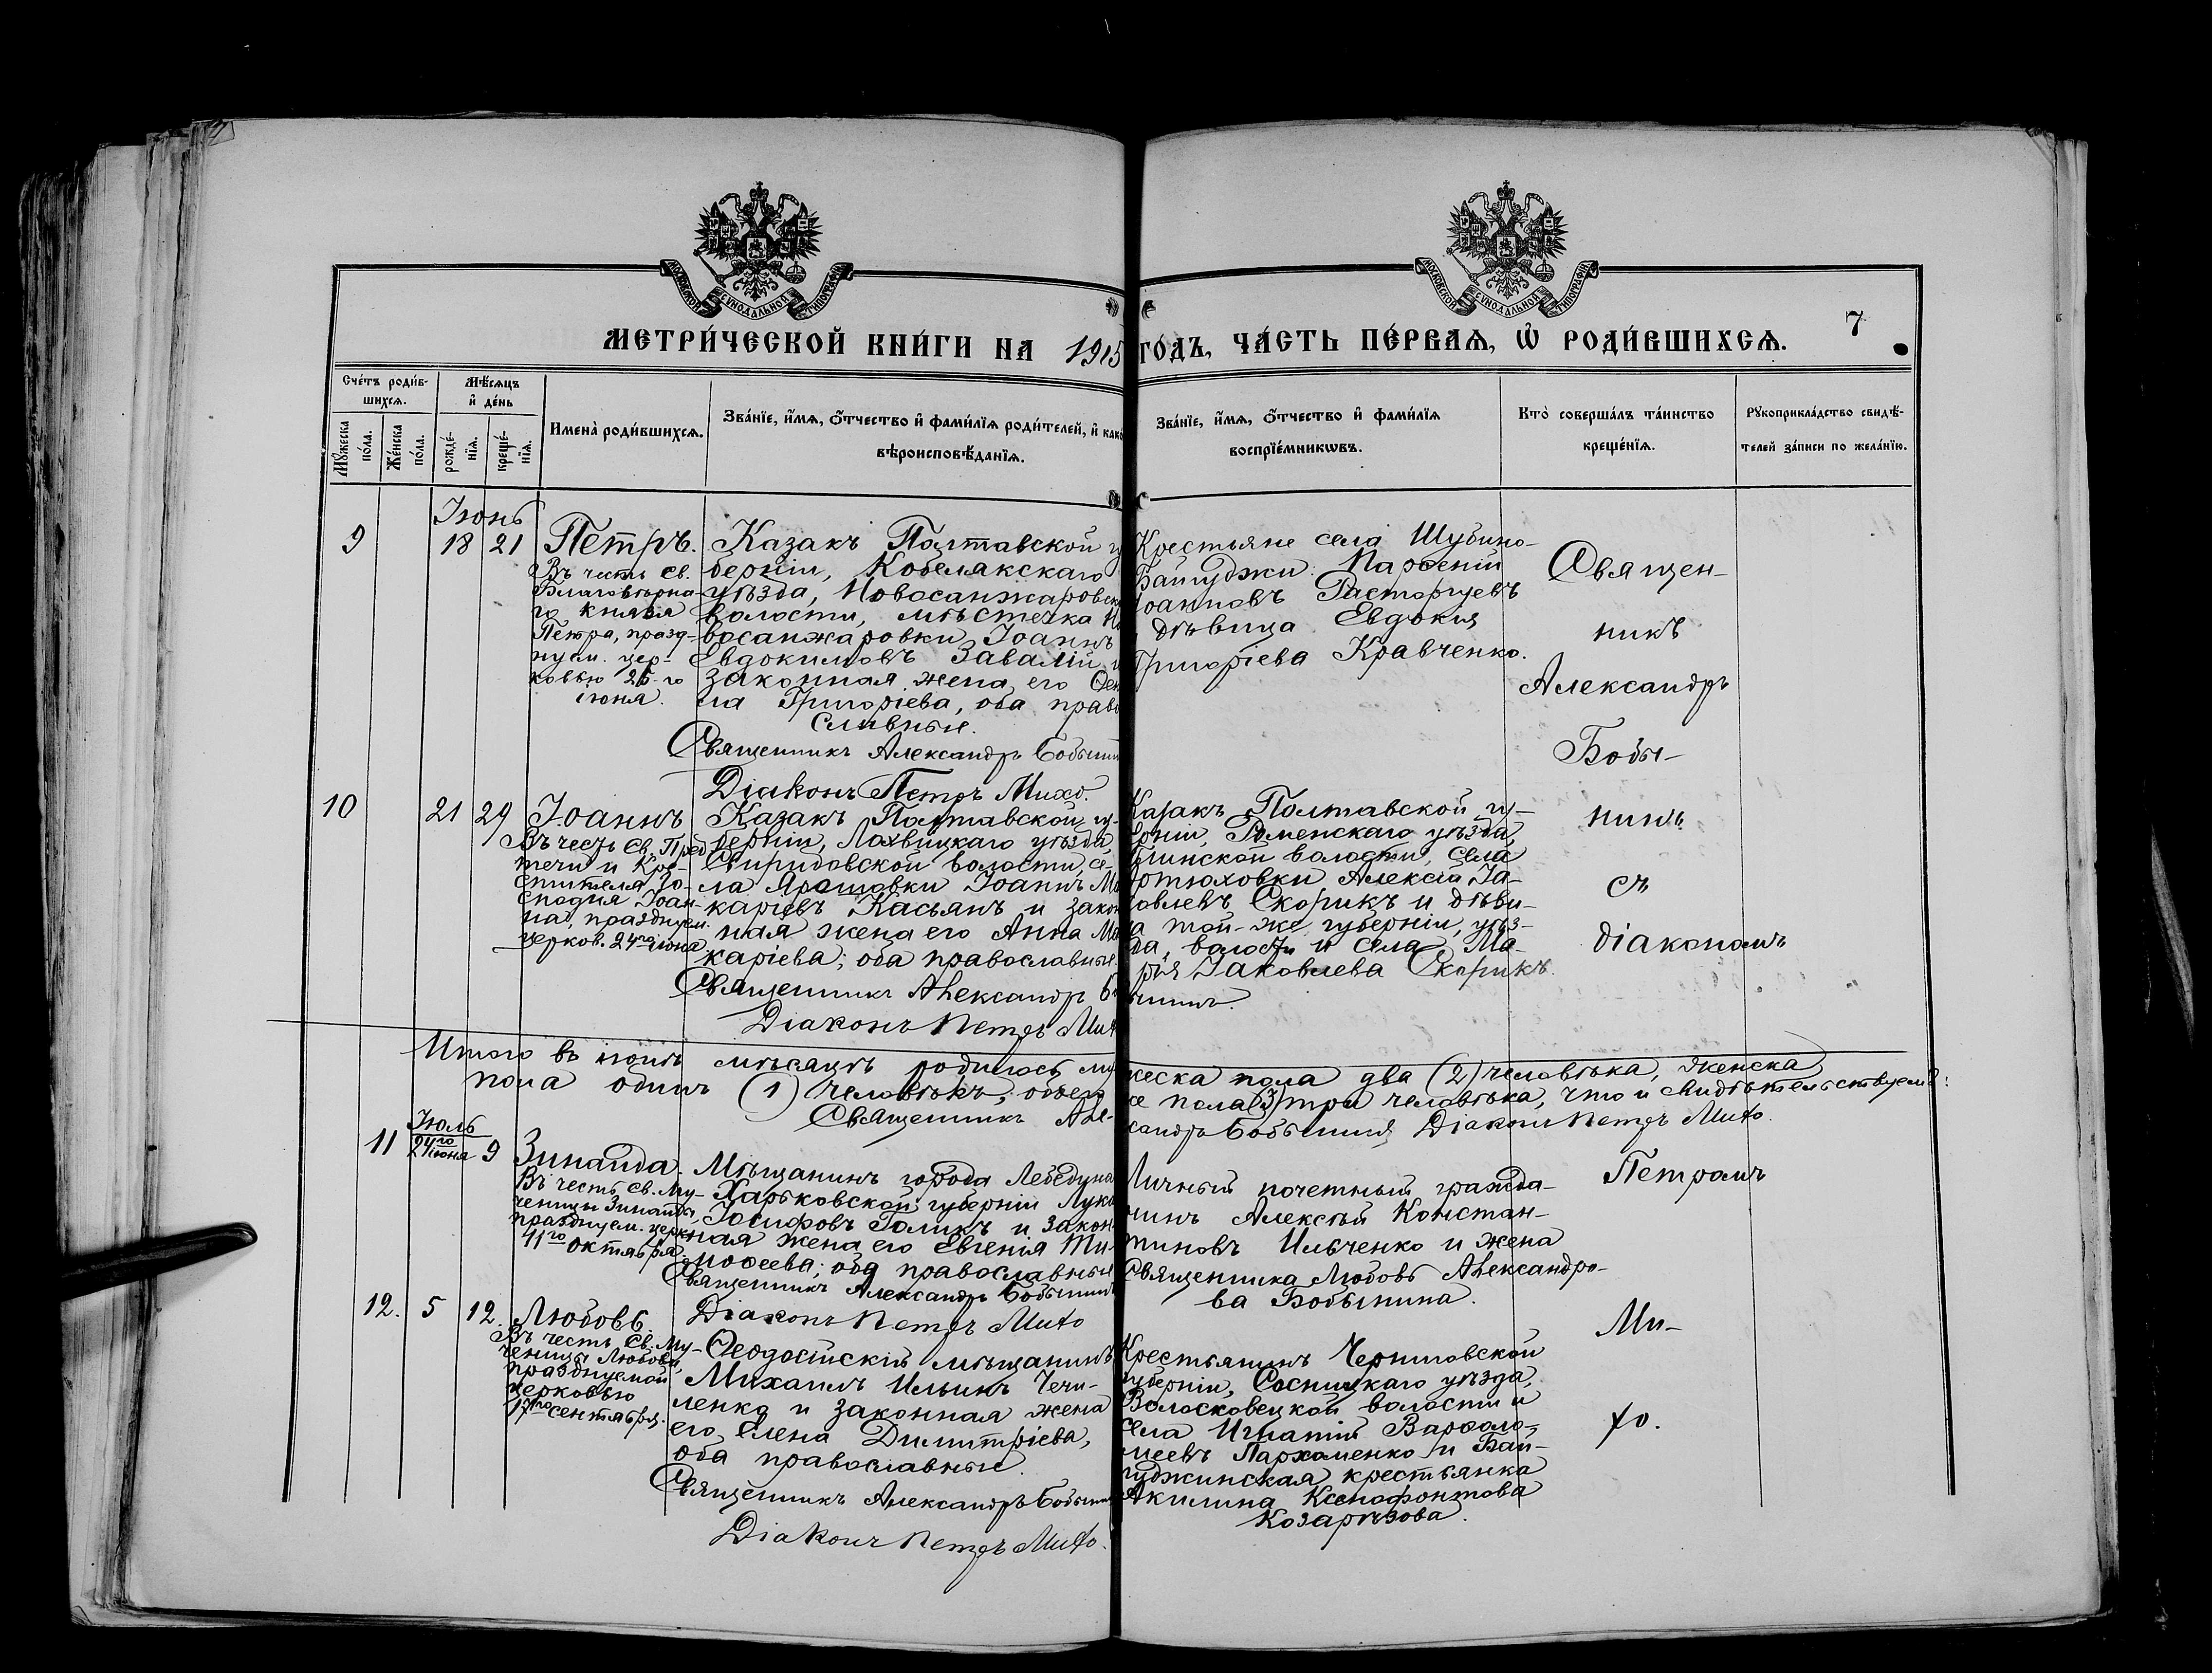 МОСКОВСКОЙ СѴНОДАЛЬНОЙ ТИПОГРАФІИ
МОСКОВСКОЙ СѴНОДАЛЬНОЙ ТИПОГРАФІИ
МЕТРИ́ЧЕСКОЙ КНИ́ГИ НА 1915 ГО́ДЪ, ЧА́СТЬ ПЕ́РВАѦ, Ѡ҆ РОДИ́ВШИХСѦ.
7
Сче́тъ роди́в-
шихсѧ.
Мѣ́сѧцъ
и҆ де́нь
Мꙋ́жеска
по́ла.
Же́нска
по́ла.
рожде́-
нїѧ.
креще́-
нїѧ.
Имена̀ роди́вшихсѧ.
Зва́нїе, и҆́мѧ, ѻ҆́тчество и҆ фами́лїѧ роди́телей, и҆ како
вѣроисповѣ́данїѧ.
Зва́нїе, и҆́мѧ, ѻ҆́тчество и҆ фами́лїѧ
воспрїе́мникѡвъ.
Кто̀ соверша́лъ та́инство
креще́нїѧ.
Рꙋкоприкла́дство свидѣ́-
телей за́писи по жела́нїю.
Іюнь
9 18 21 Петръ.
Въ честь св.
Благовѣрна-
го князя
Петра, празд-
нуем. цер-
ковью 25-го
іюня.
Казакъ Полтавской гу
берніи, Кобелякскаго
уѣзда, Новосанжаровск
волости, мѣстечка Но
восанжаровки Іоаннъ
Евдокимовъ Завалій и
законная жена его Ѳек
ла Григоріева, оба право
славные.
Священникъ Александръ Бобынин
Діаконъ Петръ Михо.
Крестьяне села Шубино-
Байгуджи: Парѳеній
Іоанновъ Расторгуевъ
и дѣвица Евдокія
Григоріева Кравченко.
Священ-
никъ
Александръ
Бобы-
нинъ
съ
діакономъ
Петромъ
Ми-
хо.
10 21 29 Іоаннъ
Въ честь Св. Пред
течи и Кре-
стителя Го-
сподня Іоан-
на, празднуем.
церков. 24го іюня
Казакъ Полтавской гу-
берніи, Лохвицкаго уѣзда,
Свиридовской волости, се-
ла Ярошовки Іоаннъ Ма
каріевъ Касьянъ и закон
ная жена его Анна Ма
каріева; оба православные.
Священникъ Александръ Бобынинъ.
Діаконъ Петръ Мих
Казакъ Полтавской гу-
берніи, Роменскаго уѣзда,
Глинской волости, села
Артюховки Алексій Іа-
ковлевъ Скорикъ и дѣви-
ца той-же губерніи, уѣз-
да, волости и села Ма-
рія Іаковлева Скорикъ.
Итого въ іюнѣ мѣсяцѣ родилось мужеска пола два (2) человѣка, женска
пола одинъ (1) человѣкъ; обоего же пола (3) три человѣка, что и свидѣтельствуемъ:
Священникъ Александръ Бобынинъ Діаконъ Петръ Михо.
Іюль
11 24го іюня 9 Зинаида.
Въ честь св. Му-
ченицы Зинаиды,
празднуем. церк
11го октября.
Мѣщанинъ города Лебедина
Харьковской губерніи Лука
Іосифовъ Голикъ и закон-
ная жена его Евгенія Ти-
моѳеева; оба православные
Священникъ Александръ Бобынинъ
Діаконъ Петръ Михо
Личный почетный гражда-
нинъ Алексѣй Констан-
тиновъ Ильченко и жена
священника Любовь Александро-
ва Бобынина.
12. 5 12. Любовь.
Въ честь Св. Му-
ченицы Любови,
празднуемой
церковью
17го сентября.
Ѳеодосійскій мѣщанинъ
Михаилъ Ильинъ Чечи-
ленко и законная жена
его Елена Димитріева,
оба православные.
Священникъ Александръ Бобынин
Діаконъ Петръ Михо.
Крестьянинъ Черниговской
губерніи, Сосницкаго уѣзда,
Волосковецкой волости и
села Игнатій Варѳоло-
меевъ Пархоменко и Бай-
гуджинская крестьянка
Акилина Ксенофонтова
Козарѣзова.